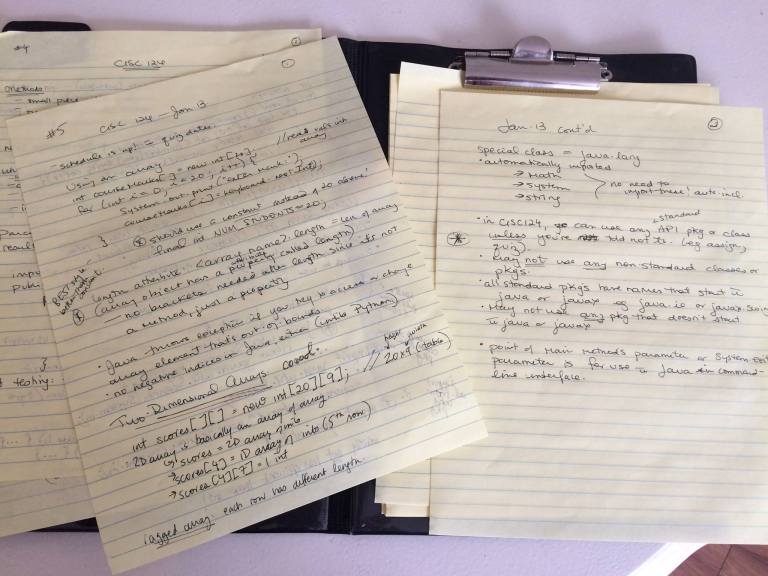 #4
CISC 124
Methods
- small
#5
CISC 124 - Jan. 13
- schedule is up! = quiz dates.
Using an array
int courseMarks[] = new int[20];
// read vals into array
for (int i = 0; i < 20; i++) {
System.out.print("enter mark:");
courseMarks[i] = keyboard.nextInt();
}
* should use a constant instead of 20 above!
final int NUM_STUDENTS = 20;
length attribute: (array name).length = len of array
(array object has a property called length)
- no brackets needed after length since it's not
a method, just a property
· Java throws exception if you try to access or change
array element that's out of bounds
· no negative indices in Java, either (unlike Python)
Two-Dimensional Arrays cooool.
int scores[][] = new int[20][9]; // 20x9 (table)
2D array is basically an array of array
scores = 2D array of ints
→ scores[4] = 1D array of ints (5th row)
→ scores[4][7] = 1 int
ragged array: each row has different length.
testing:
2
Jan. 13 cont'd
special class = java.lang
· automatically imported
→ Math
→ System
→ String
no need to
import these! auto-incl.
· in CISC124, can use any standard API pkg or class
unless you're told not to. (eg assign,
quiz)
* · may not use any non-standard classes or
pkgs.
· all standard pkgs have names that start w
java or javax eg java.io or javax.swing
· May not use any pkg that doesn't start
w java or javax
· point of Main method's parameter or System.exit
parameter is for use w Java in command-
line interface.